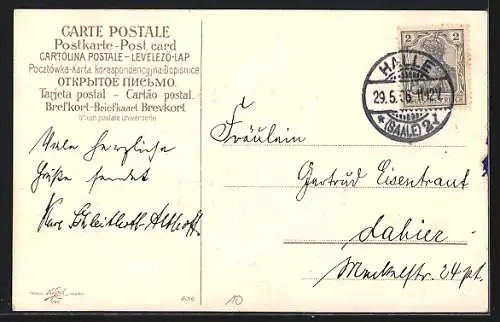 CARTE POSTALE
Postkarte-Post card
CARTOLINA POSTALE – LEVELEZÖ-LAP
Pocztówka-Karta korespondencyjna-Dopisnice
ОТКРЫТОЕ ПИСЬМО.
Tarjeta postal – Cartão postal.
Brefkort-Briefkaart Brevkort
Union postale universelle
2 2
HALLE
29.5.06.11-12V.
* (SAALE) 21
Viele herzliche
Grüße sendet
Fräulein
Gertrud Eisentraut
dahier
24 pt.
636
10